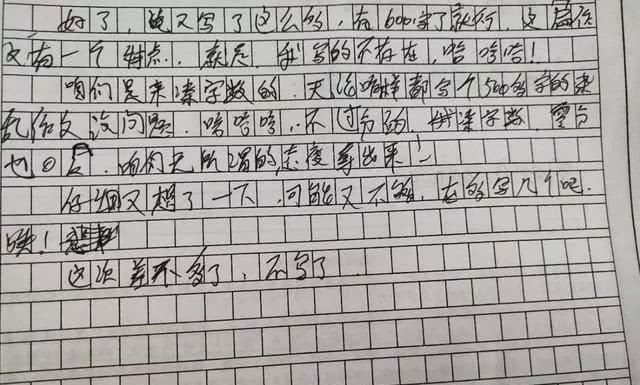 好了,又写了这么多,有600字了就行,这篇作
文有一个特点,就是,我写的不存在,哈哈哈!
咱们是来凑字数的,无论咋样都写个500多字的来
作文没问题,哈哈哈,不过分的,凑字数,零分
也,咱有无所谓的态度拿出来!
仔细又想了一下,可能又不够,在多写几个吧.
唉!
这次差不多了,不写了